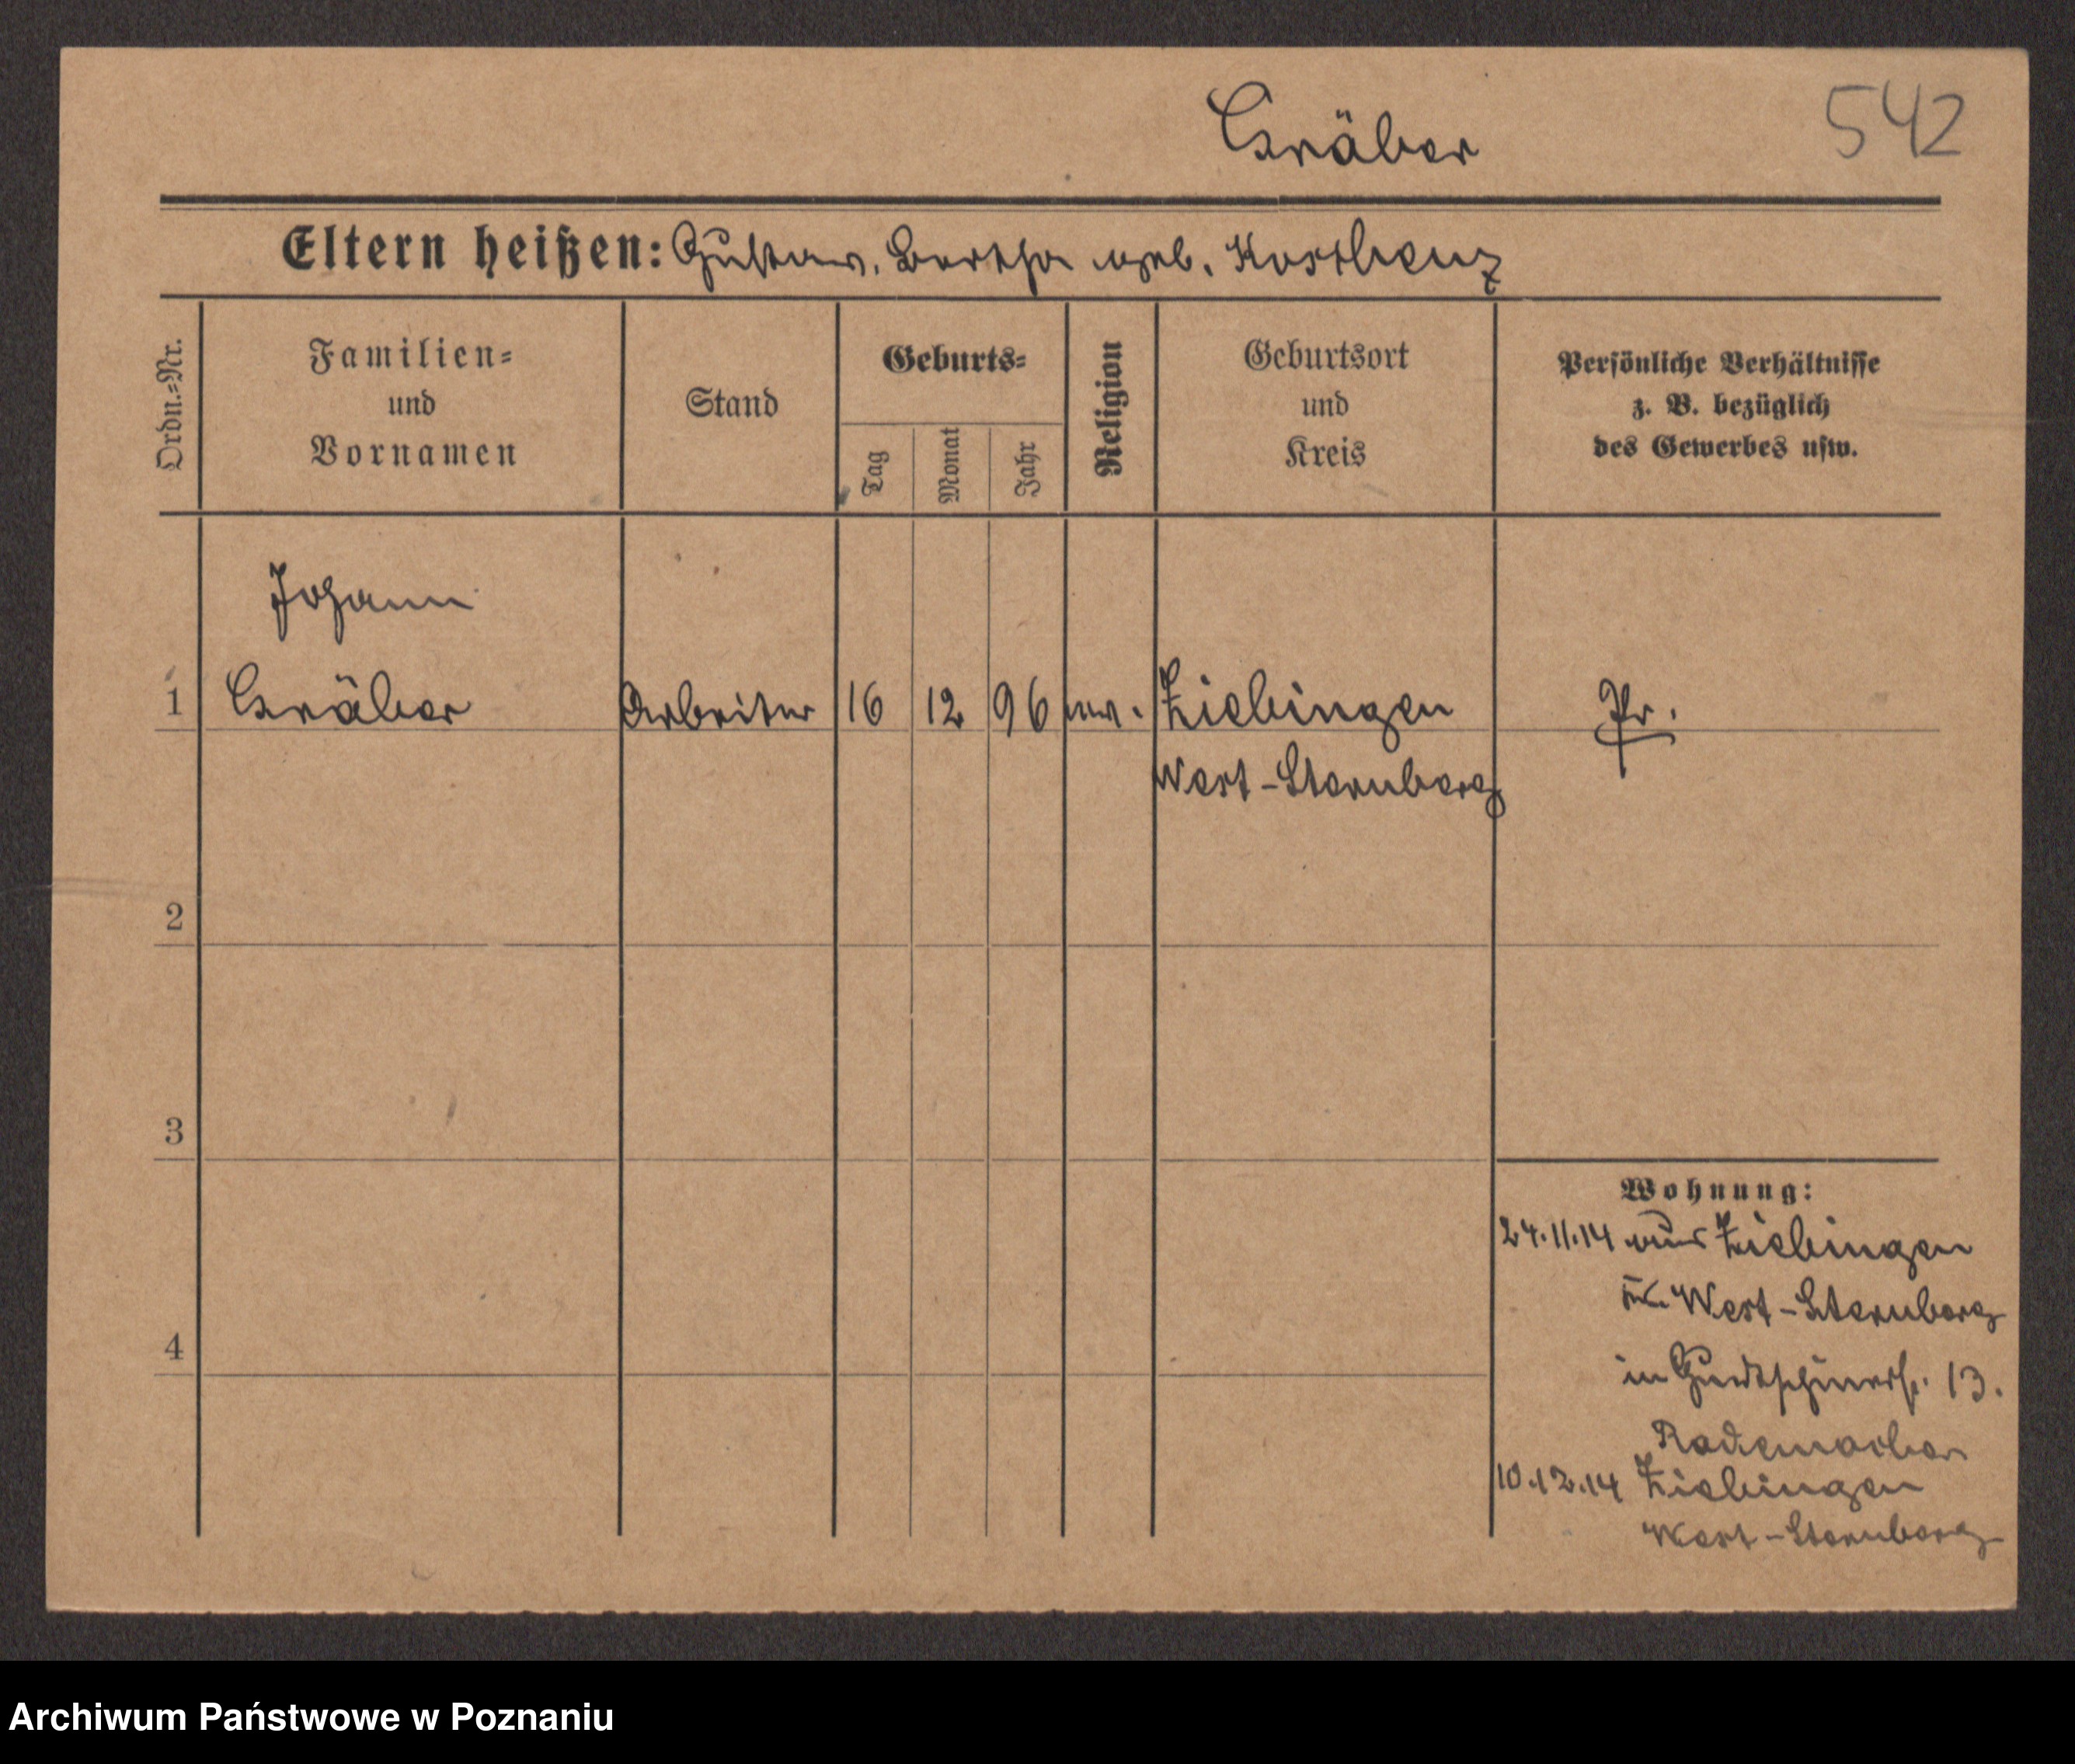 Gräber
542
Eltern heißen: Gustav. Bertha geb.
Ordn.=Nr.
Familien=
und
Vornamen
Stand
Geburts=
Tag
Monat
Jahr
Religion
Geburtsort
und
Kreis
Persönliche Verhältnisse
z. B. bezüglich
des Gewerbes usw.
Johann
1 Gräber Arbeiter 16 12 96 ev. Ziebingen Pr.
West-Sternberg
2
3
4
Wohnung:
24.11.14 aus Ziebingen
Kr. West-Sternberg
in 13.
Rademacher
10.12.14 Ziebingen
West-Sternberg
Archiwum Państwowe w Poznaniu